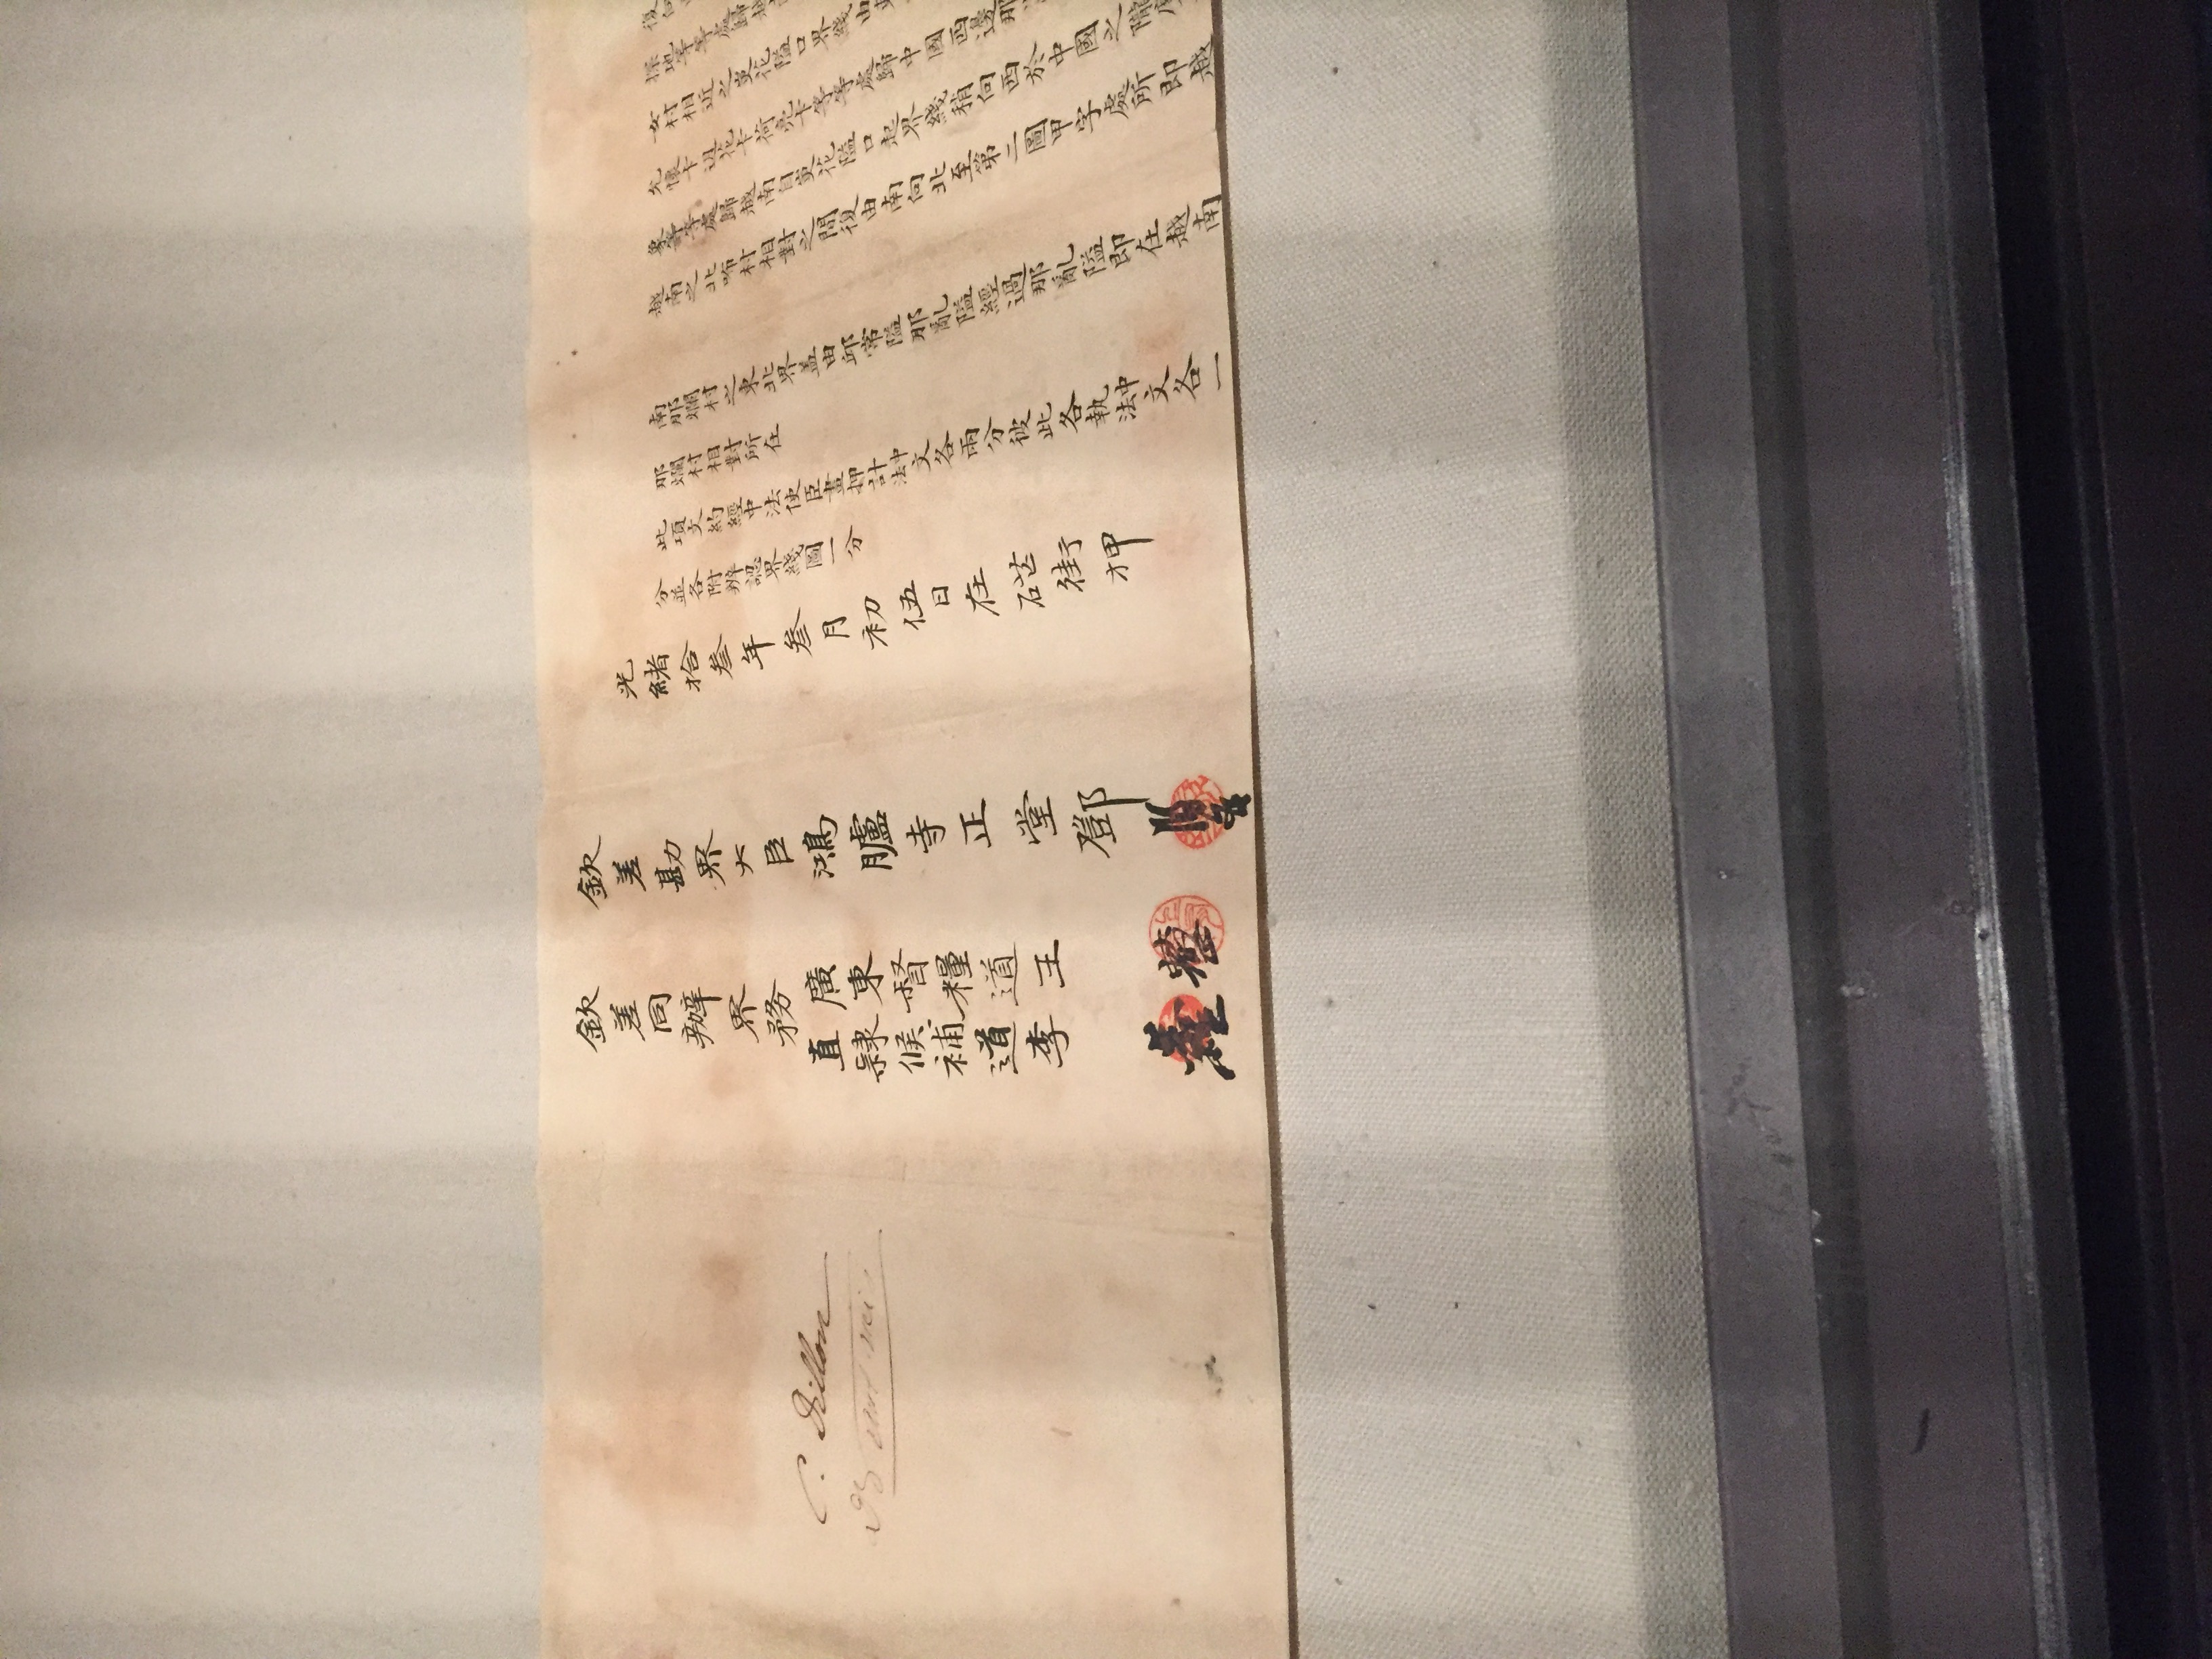 復向
探地等處歸越南
女村相近之嵬花隘口界綫由
允懷卡边花卡荷亮卡等處歸中國西邊那
象等處歸越南自嵬花隘口起界綫稍向西於中國之隴
越南之北㖊村相對之間復由南向北至第二圖甲字處所即越
南那爛村之東北界蓋由邱常隘那亂隘經過那亂隘即在越南
那爛村相對所在
此項文約經中法使臣畫押計中法文各兩分彼此各執中法文各一
分並各附辨認界綫圖一分
光緒拾叁年叁月初伍日在硭街押
欽差勘界大臣鴻臚寺正堂鄧
欽差同辦界務
廣東督糧道王
直隸候補道李
C. Dillon